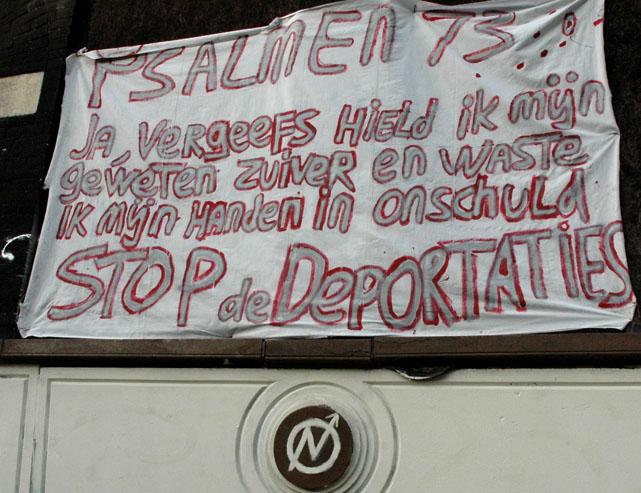 PSALMEN 73...:0
JA, VERGEEFS HIELD IK MIJN
GEWETEN ZUIVER EN WASTE
IK MIJN HANDEN IN ONSCHULD
STOP de DePORTATIES
N